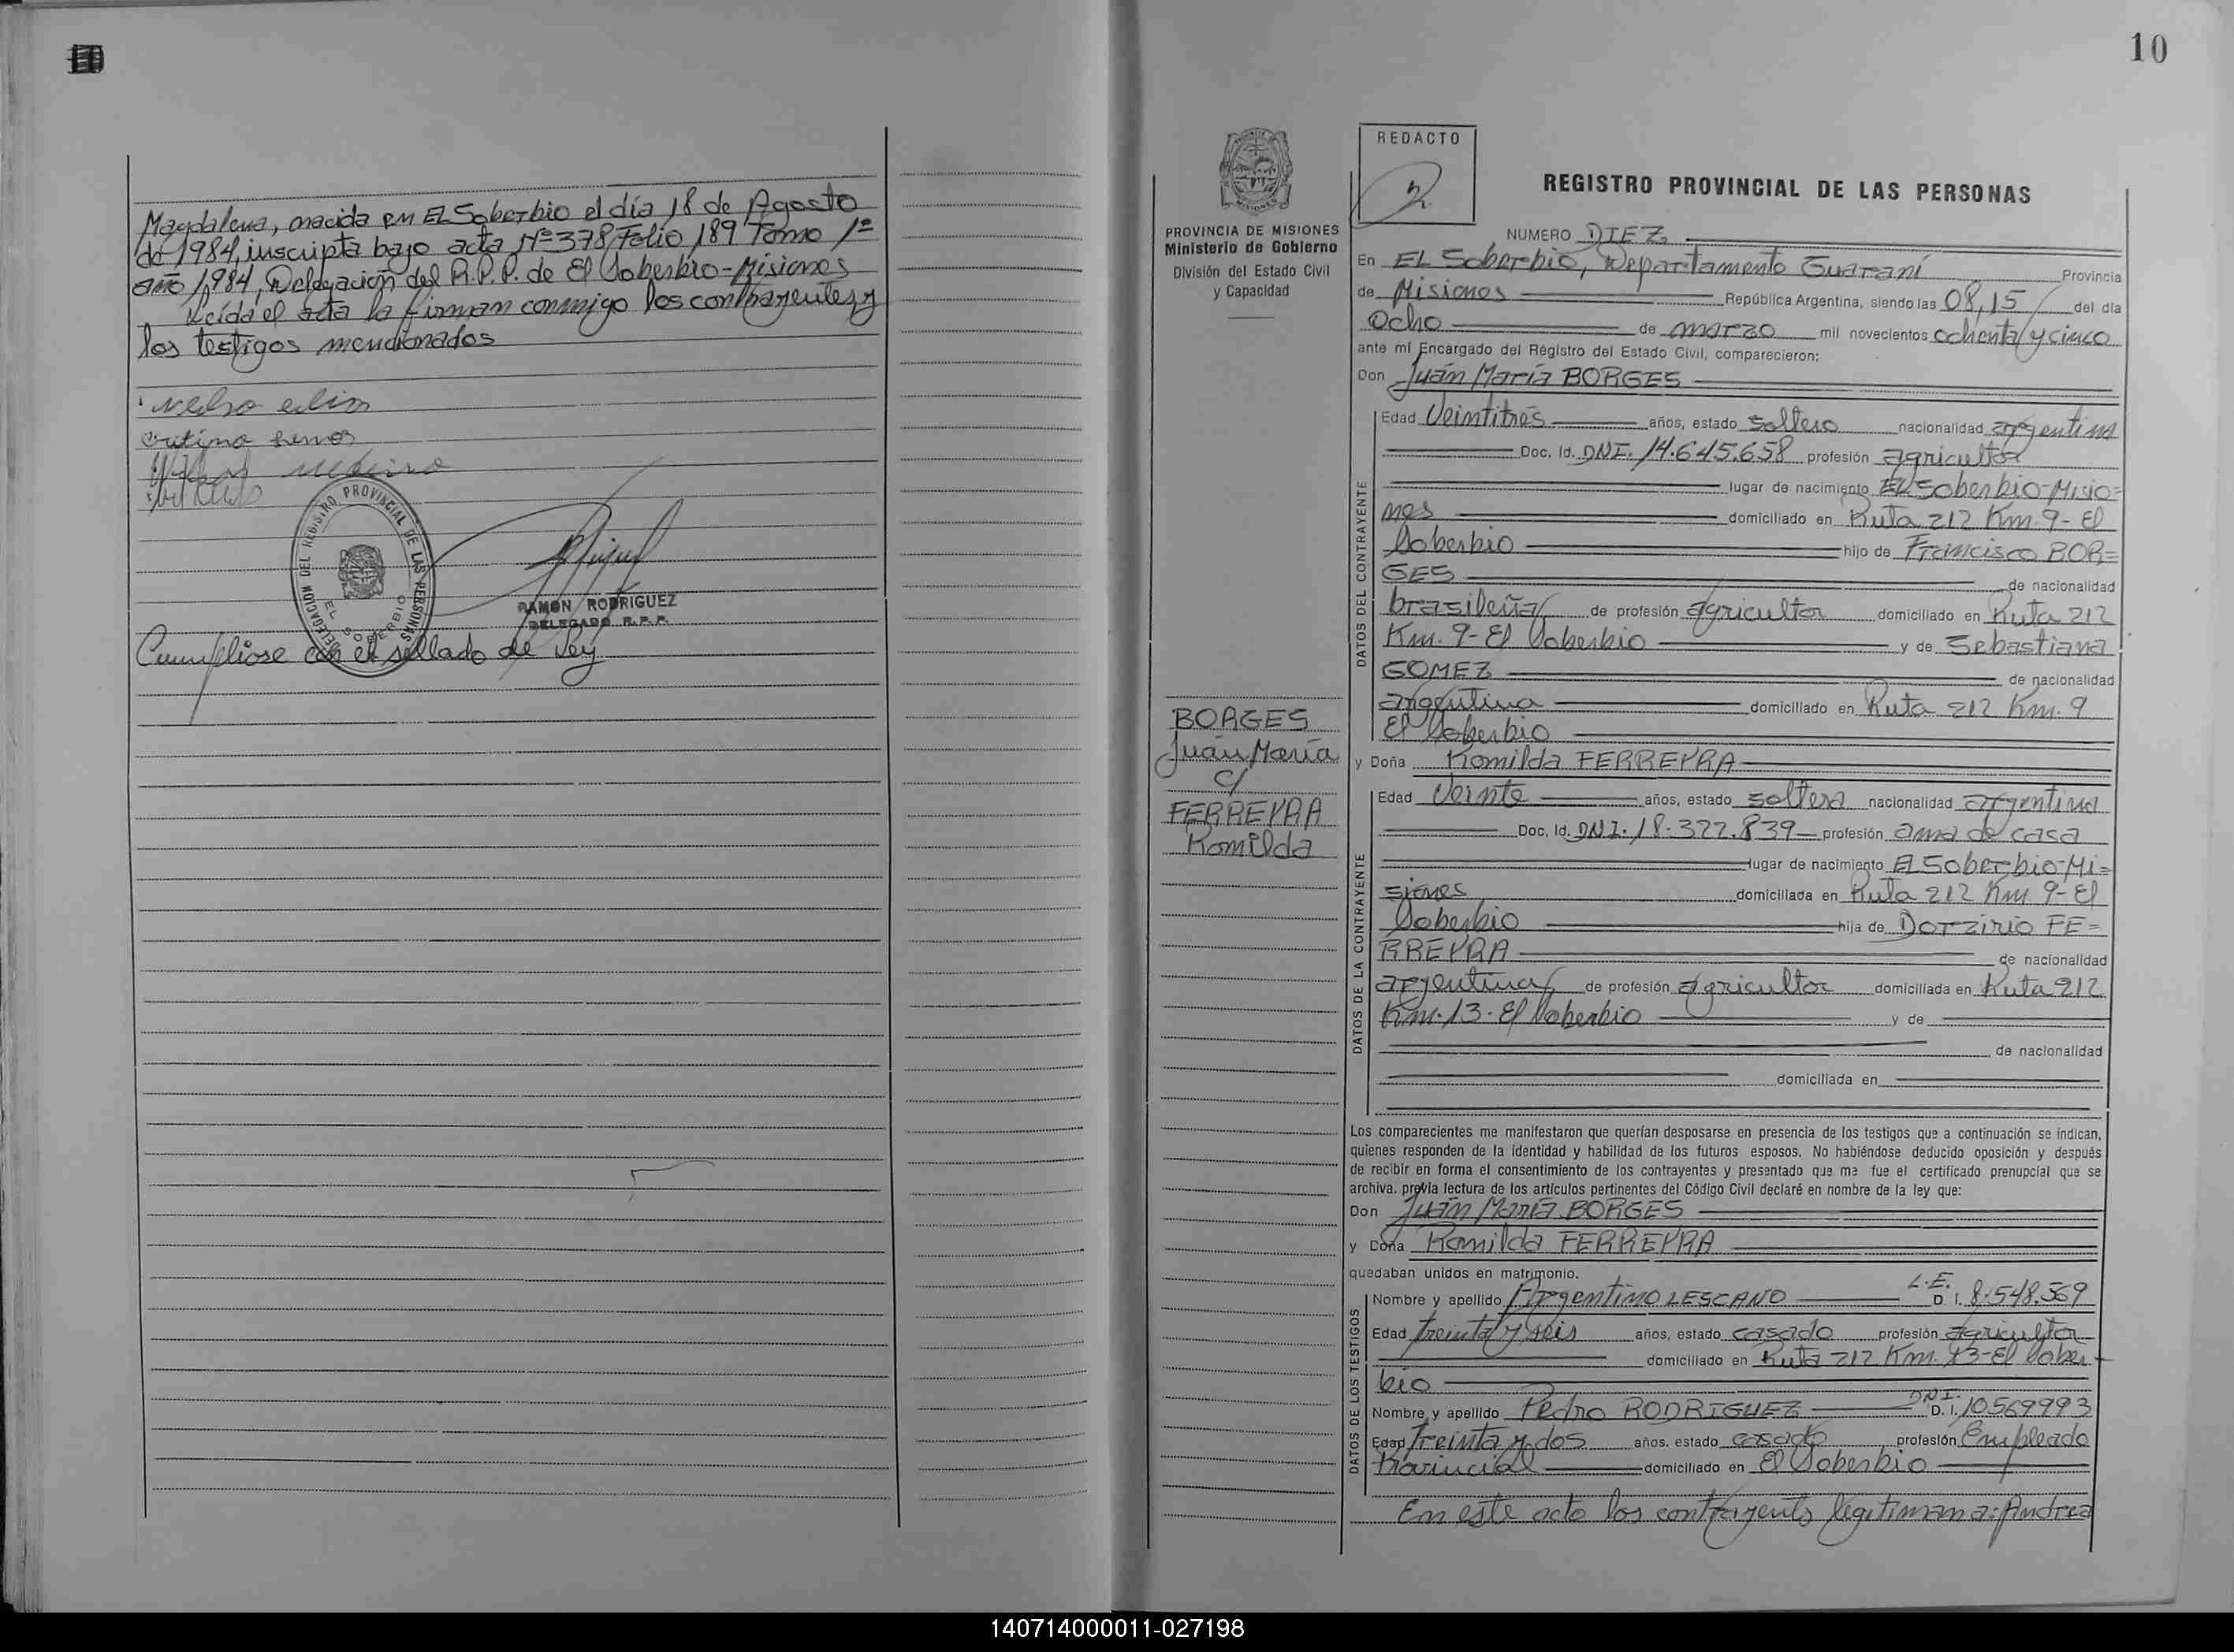 Magdalena, nacida en El Soberbio el día 18 de Agosto
de 1984, inscripta bajo acta Nº 378 Folio 189 Tomo 1º
año 1984, Delegación del R.P.P. de El Soberbio-Misiones
Leída el acta la firman conmigo los contrayentes y
los testigos mencionados
DELEGACION DEL REGISTRO PROVINCIAL DE LAS PERSONAS
EL SOBERBIO
RAMON RODRIGUEZ
DELEGADO R.P.P.
Cumpliose con el sellado de ley
10
REDACTO
REGISTRO PROVINCIAL DE LAS PERSONAS
MISIONES
PROVINCIA DE MISIONES
Ministerio de Gobierno
División del Estado Civil
y Capacidad
BORGES
Juan María
c/
FERREYRA
Romilda
NUMERO DIEZ
En El Soberbio, Departamento Guaraní Provincia
de Misiones República Argentina, siendo las 08,15 del día
Ocho de marzo mil novecientos ochenta y cinco
ante mí Encargado del Registro del Estado Civil, comparecieron:
Don Juán María BORGES
DATOS DEL CONTRAYENTE
Edad Veintitrés años, estado soltero nacionalidad argentina
Doc. Id. DNI. 14.645.658 profesión agricultor
lugar de nacimiento El Soberbio-Misio=
nes domiciliado en Ruta 212 Km. 9- El
Soberbio hijo de Francisco BOR=
GES de nacionalidad
brasileña de profesión agricultor domiciliado en Ruta 212
Km. 9- El Soberbio y de Sebastiana
GOMEZ de nacionalidad
argentina domiciliado en Ruta 212 Km. 9
El Soberbio
y Doña Romilda FERREYRA
DATOS DE LA CONTRAYENTE
Edad Veinte años, estado soltera nacionalidad argentina
Doc. Id. DNI. 18.322.839 profesión ama de casa
lugar de nacimiento El Soberbio-Mi=
siones domiciliada en Ruta 212 Km 9- El
Soberbio hija de Dorzirio FE=
RREYRA de nacionalidad
argentina de profesión agricultor domiciliada en Ruta 212
Km. 13- El Soberbio y de
de nacionalidad
domiciliada en
Los comparecientes me manifestaron que querían desposarse en presencia de los testigos que a continuación se indican,
quienes responden de la identidad y habilidad de los futuros esposos. No habiéndose deducido oposición y después
de recibir en forma el consentimiento de los contrayentes y presentado que me fue el certificado prenupcial que se
archiva, previa lectura de los artículos pertinentes del Código Civil declaré en nombre de la ley que:
Don Juán María BORGES
y Doña Romilda FERREYRA
quedaban unidos en matrimonio.
DATOS DE LOS TESTIGOS
Nombre y apellido Argentino LESCANO L.E. D. I. 8.548.569
Edad treinta y seis años, estado casado profesión agricultor
domiciliado en Ruta 212 Km. 13- El Sober-
bio
Nombre y apellido Pedro RODRIGUEZ DNI. D. I. 10569993
Edad Treinta y dos años. estado casado profesión Empleado
Provincial domiciliado en El Soberbio
En este acto los contrayents legitiman a: Andrea
140714000011-027198